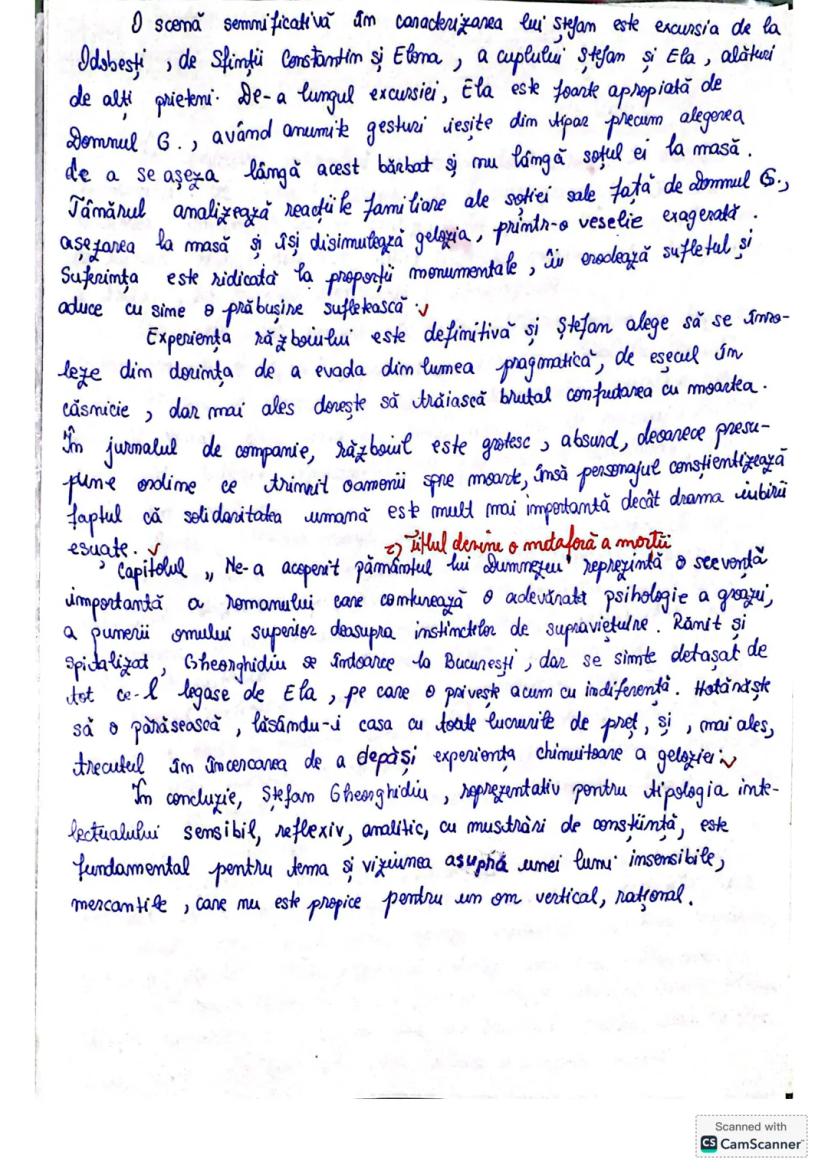 O scenă semnificativă în caracterizarea lui Ștefan este excursia de la
Odobești, de Sfinții Constantin și Elena, a cuplului Ștefan și Ela, alături
de alți prieteni. De-a lungul excursiei, Ela este foarte apropiată de
Domnul G., având anumite gesturi ieșite din tipar precum alegerea
de a se așeza lângă acest bărbat și nu lângă soțul ei la masă.
Tânărul analizează reacțiile familiare ale soției sale față de domnul G.,
așezarea la masă și își disimulează gelozia, printr-o veselie exagerată.
Suferința este ridicată la proporții monumentale, îi erodează sufletul și
aduce cu sine o prăbușire sufletească.
Experiența războiului este definitivă și Ștefan alege să se înro-
leze din dorința de a evada din lumea pragmatică, de eșecul în
căsnicie, dar mai ales dorește să trăiască brutal confudarea cu moartea.
În jurnalul de companie, războiul este grotesc, absurd, deoarece presu-
pune ordine ce trimit oamenii spre moarte, însă personajul conștientizează
faptul că solidaritatea umană este mult mai importantă decât drama iubirii
eșuate.
→ Titlul devine o metaforă a morții
Capitolul „Ne-a acoperit pământul lui Dumnezeu" reprezintă o secvență
importantă a romanului care conturează o adevărată psihologie a groazei,
a punerii omului superior deasupra instinctelor de supraviețuire. Rănit și
spitalizat, Gheorghidiu se întoarce la București, dar se simte detașat de
tot ce-l legase de Ela, pe care o privește acum cu indiferență. Hotărăște
să o părăsească, lăsându-i casa cu toate lucrurile de preț, și, mai ales,
trecutul în încercarea de a depăși experiența chinuitoare a geloziei.
În concluzie, Ștefan Gheorghidiu, reprezentativ pentru tipologia inte-
lectualului sensibil, reflexiv, analitic, cu mustrări de conștiință, este
fundamental pentru tema și viziunea asupra unei lumi insensibile,
mercantile, care nu este propice pentru un om vertical, rațional.
Scanned with
CS CamScanner